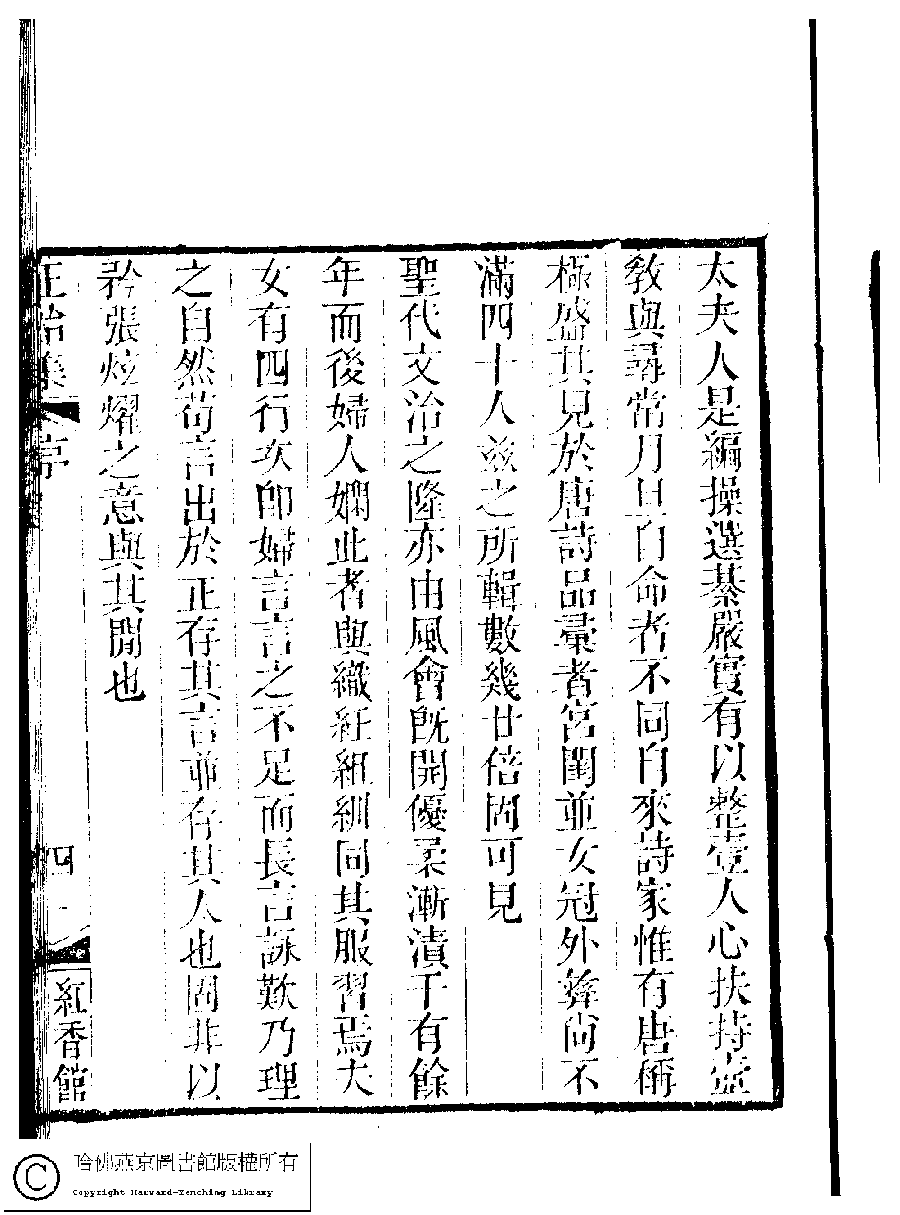 太夫人是編操選綦嚴實有以整壹人心扶持壼
教與尋常月旦自命者不同自來詩家惟有唐稱
極盛其見於唐詩品彙者宮閨並女冠外彝尚不
滿四十人茲之所輯數幾廿倍固可見
聖代文治之隆亦由風會旣開優柔漸漬千有餘
年而後婦人嫻此者與織紝組紃同其服習焉夫
女有四行次即婦言言之不足而長言詠歎乃理
之自然苟言出於正存其言並存其人也固非以
矜張炫燿之意與其閒也
正始集 序
四
紅香館
哈佛燕京圖書館版權所有
Copyright Harvard-Yenching Library